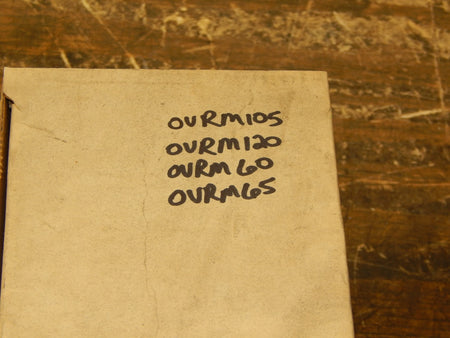 OVRM105
OVRM120
OVRM60
OVRM65